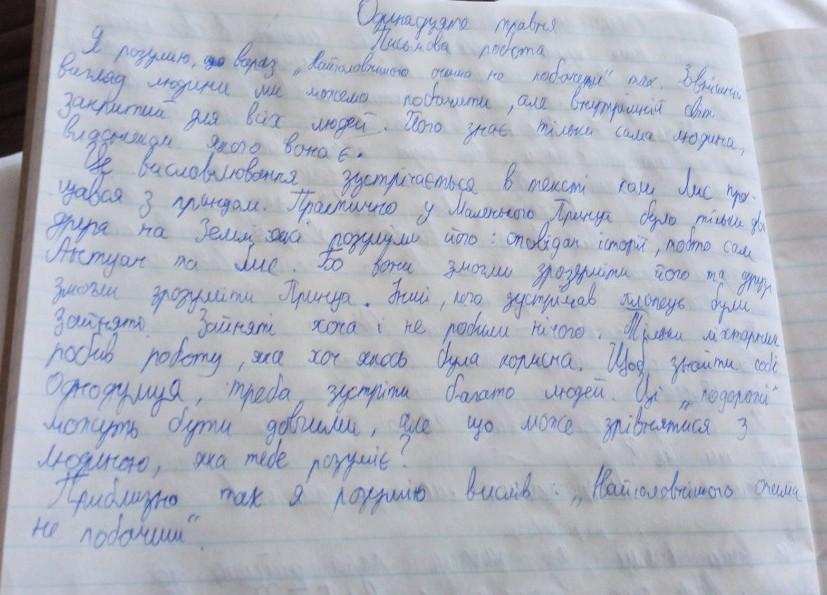 Одинадцяте травня
Письмова робота
Я розумію, що вираз „Найголовнішого очима не побачити" так. Зовнішній
вигляд людини ми можемо побачити, але внутрішній світ
закритий для всіх людей. Його знає тільки сама людина,
власником якого вона є.
Це висловлювання зустрічається в тексті коли Лис про-
щався з принцом. Практично у Маленького Принца було тільки два
друга на Землі, які розуміли його: оповідач історії, тобто сам
Антуан та Лис. Бо вони змогли зрозуміти його та
змогли зрозуміти Принца. Інші, кого зустрічав хлопець були
зайняті. Зайняті хоча і не робили нічого. Тільки ліхтарник
робив роботу, яка хоч якось була корисна. Щоб знайти собі
однодумця, треба зустріти багато людей. Ці „подорожі"
можуть бути довгими, але що може зрівнятися з
людиною, яка тебе розуміє?
Приблизно так я розумію вислів: „Найголовнішого очима
не побачиш".